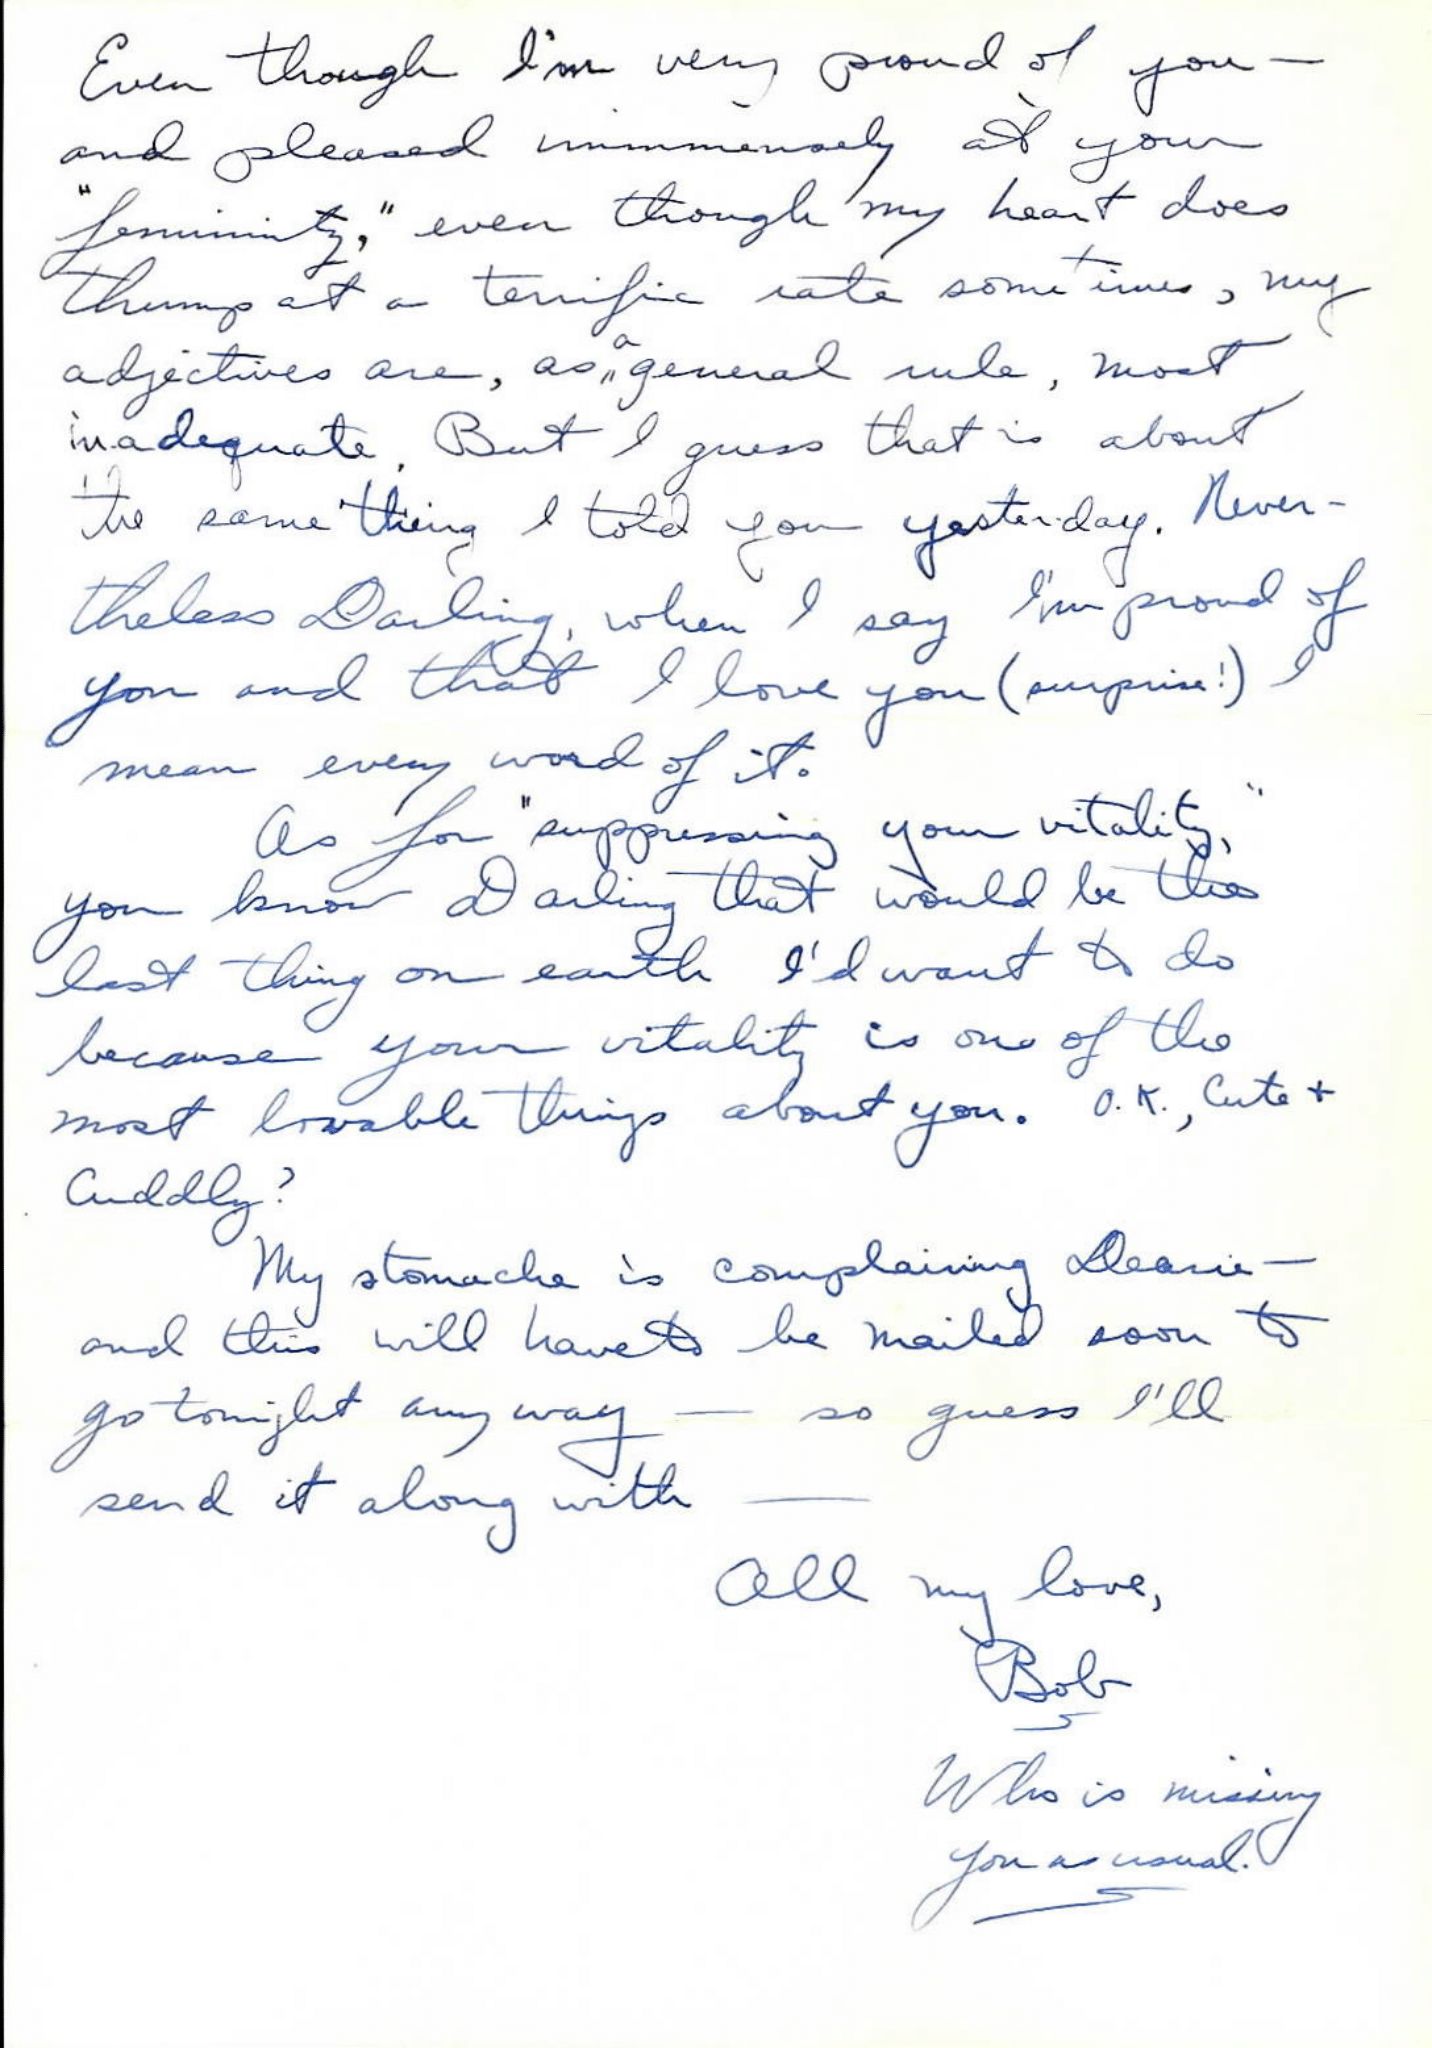 Even though I'm very proud of you —
and pleased immmensely at your
"femininity," even though my heart does
thump at a terrific rate sometimes, my
adjectives are, as a general rule, most
inadequate. But I guess that is about
the same thing I told you yesterday. Never-
theless Darling, when I say I'm proud of
you and that I love you (surprise!) I
mean every word of it.
As for "suppressing your vitality,"
you know Darling that would be the
last thing on earth I'd want to do
because your vitality is one of the
most lovable things about you. O.K., Cute +
Cuddly?
My stomache is complaining Dearie —
and this will have to be mailed soon to
go tonight any way — so guess I'll
send it along with —
All my love,
Bob
Who is missing
you as usual.